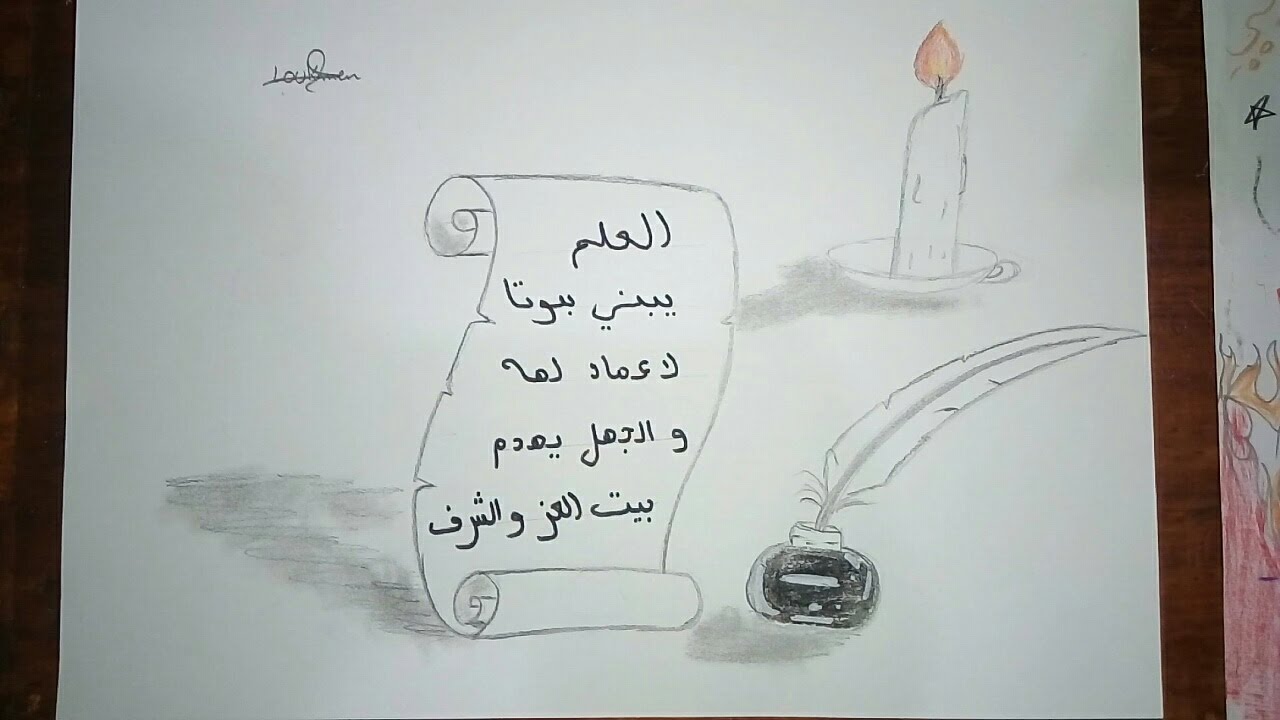 العلم
يبني بيوتا
لا عماد لهه
و الجهل يهدم
بيت العز و الشرف